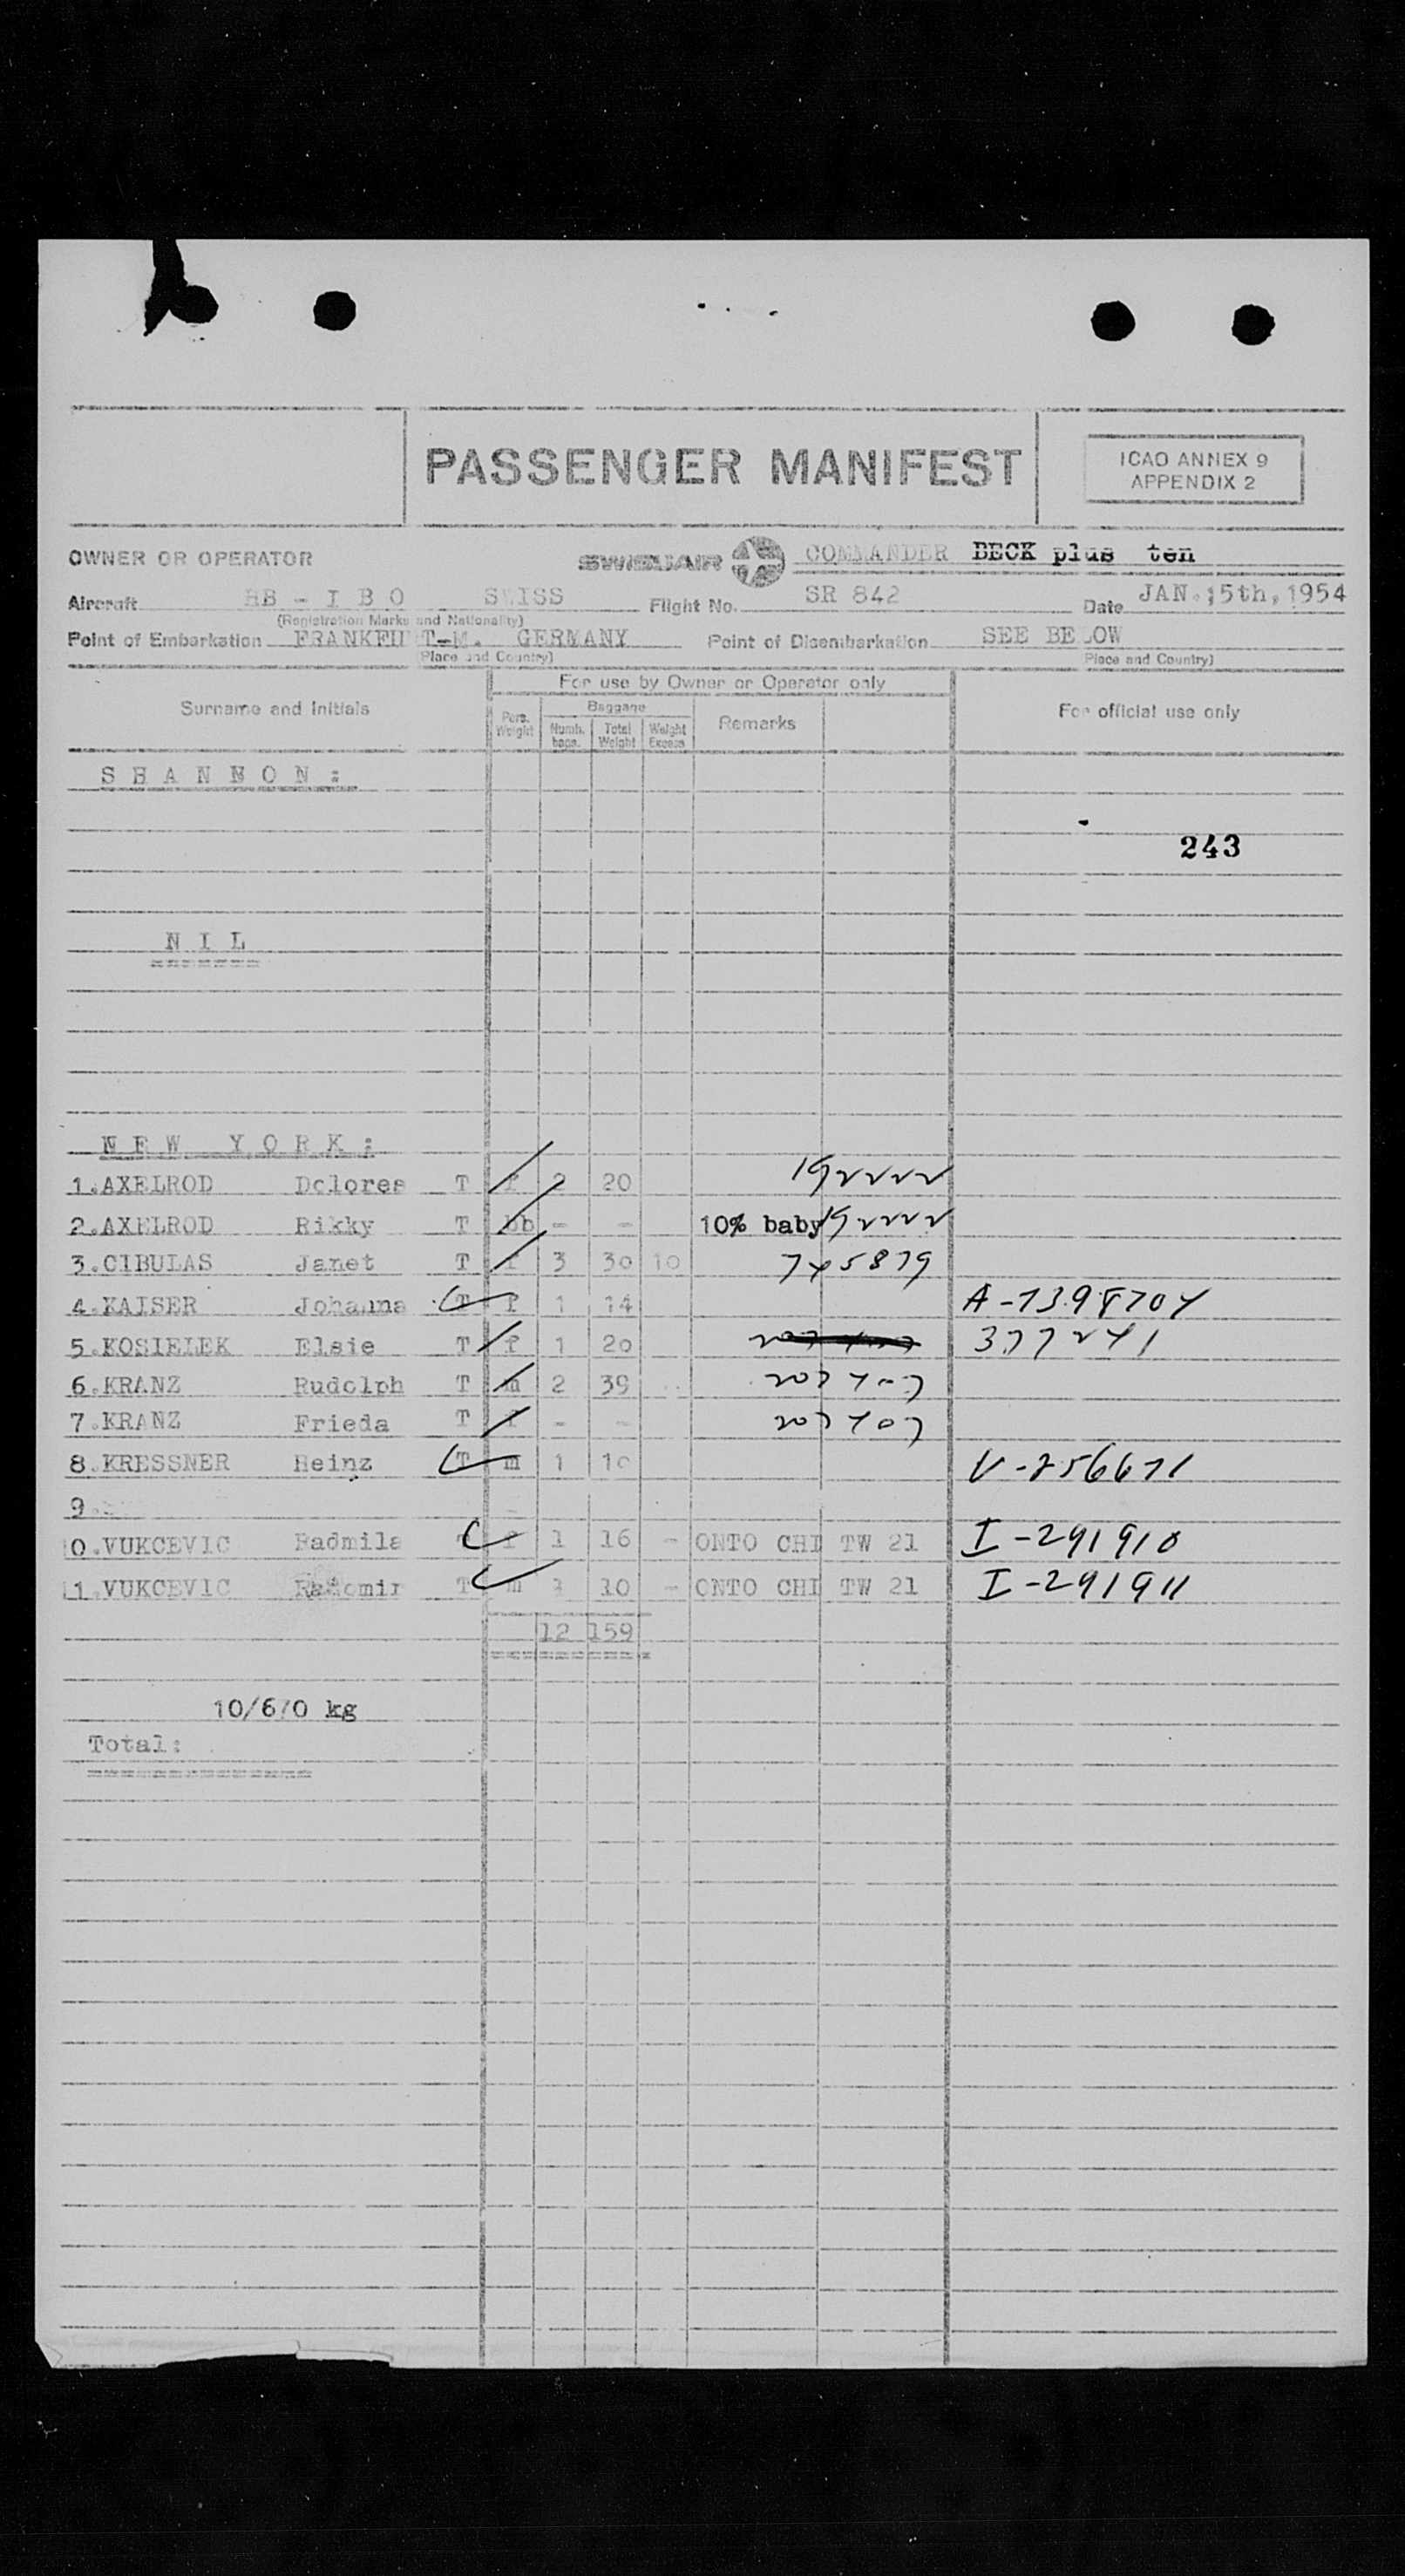 PASSENGER MANIFEST
ICAO ANNEX 9
APPENDIX 2
OWNER OR OPERATOR SWISSAIR COMMANDER BECK plus ten
Aircraft HB - I B O SWISS Flight No. SR 842 Date JAN. 15th, 1954
(Registration Marks and Nationality)
Point of Embarkation FRANKFURT-M. GERMANY Point of Disembarkation SEE BELOW
(Place and Country) (Place and Country)
For use by Owner or Operator only
Surname and Initials Pers. Weight Baggage Numb. bags. Total Weight Weight Excess Remarks For official use only
S H A N N O N :
243
N I L
N E W Y O R K :
1.AXELROD Dolores T f 2 20
2.AXELROD Rikky T bb - - 10% baby
3.CIBULAS Janet T f 3 30 10 745879
4.KAISER Johanna T f 1 14 A-
5.KOSIELEK Elsie T f 1 20 377241
6.KRANZ Rudolph T m 2 39 207407
7.KRANZ Frieda T f - - 207407
8.KRESSNER Heinz T m 1 10 V-256671
9.
10.VUKCEVIC Radmila T f 1 16 - ONTO CHI TW 21 I-291910
11.VUKCEVIC Radomir T m 1 10 - ONTO CHI TW 21 I-291911
12 159
10/670 kg
Total: